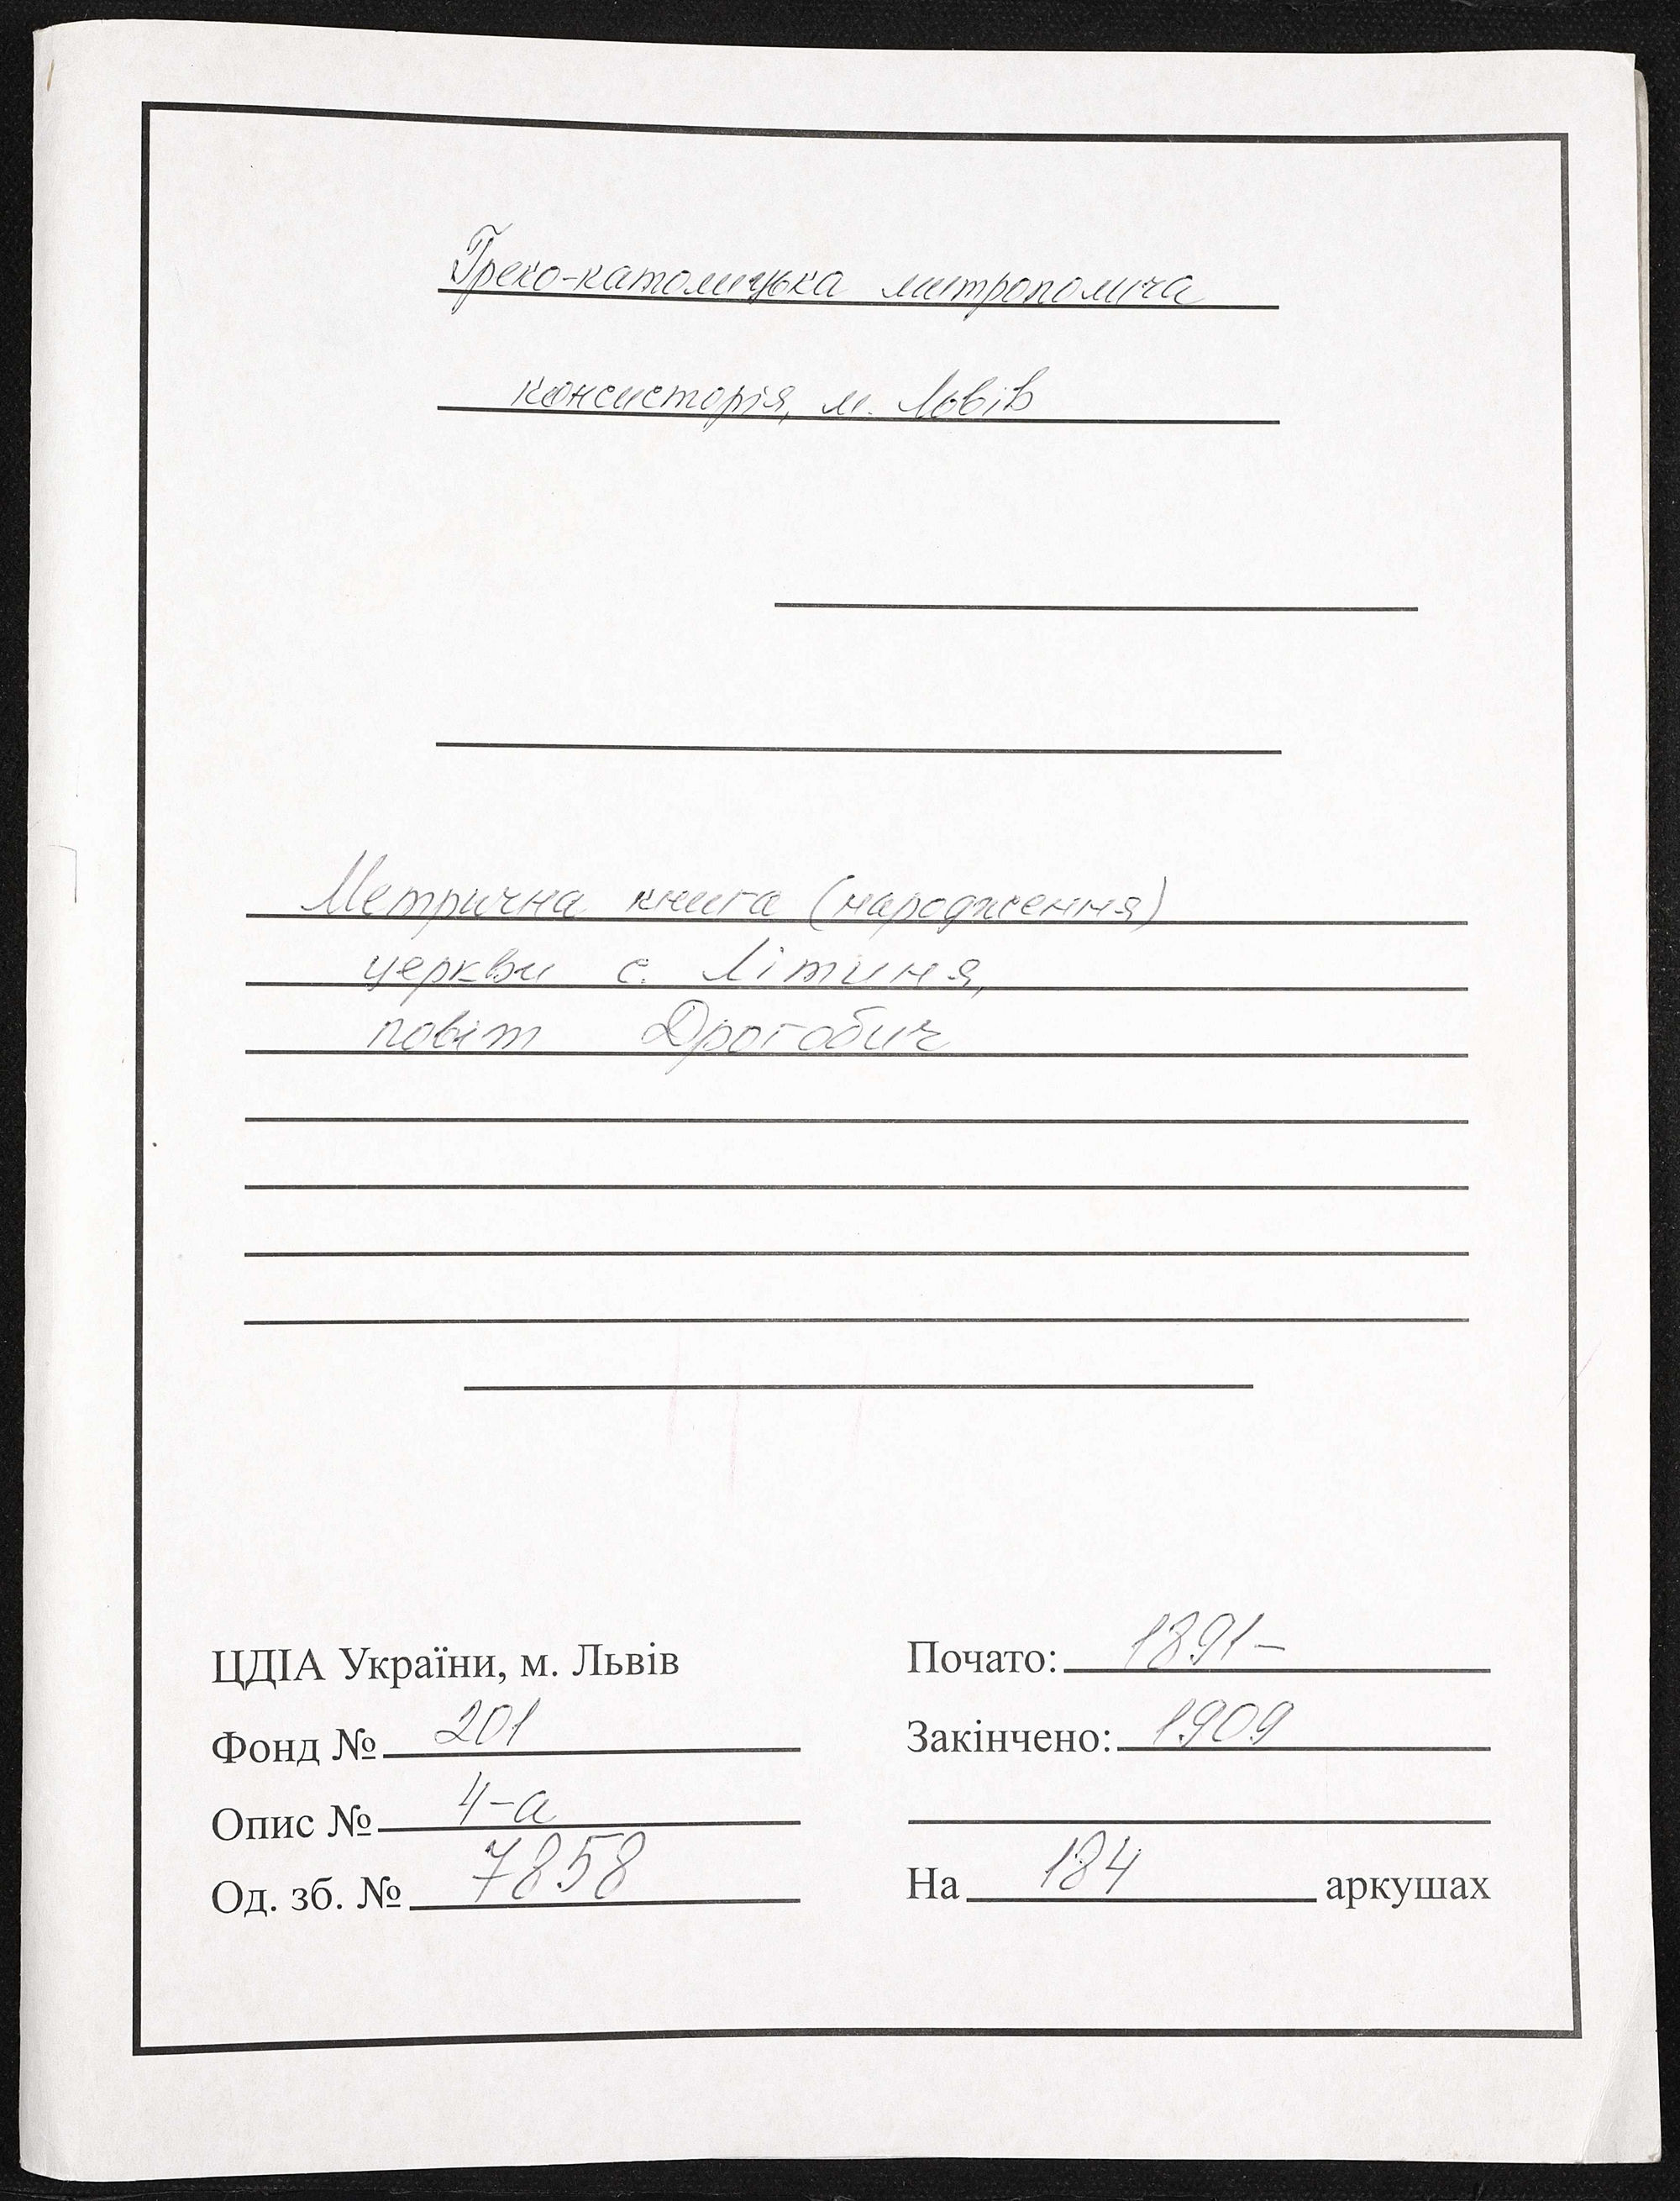 Греко-католицька митрополича
консисторія, м. Львів
Метрична книга (народження)
церкви с. Літиня,
повіт Дрогобич
ЦДІА України, м. Львів
Фонд № 201
Опис № 4-а
Од. зб. № 7858
Почато: 1891-
Закінчено: 1909
На 184 аркушах